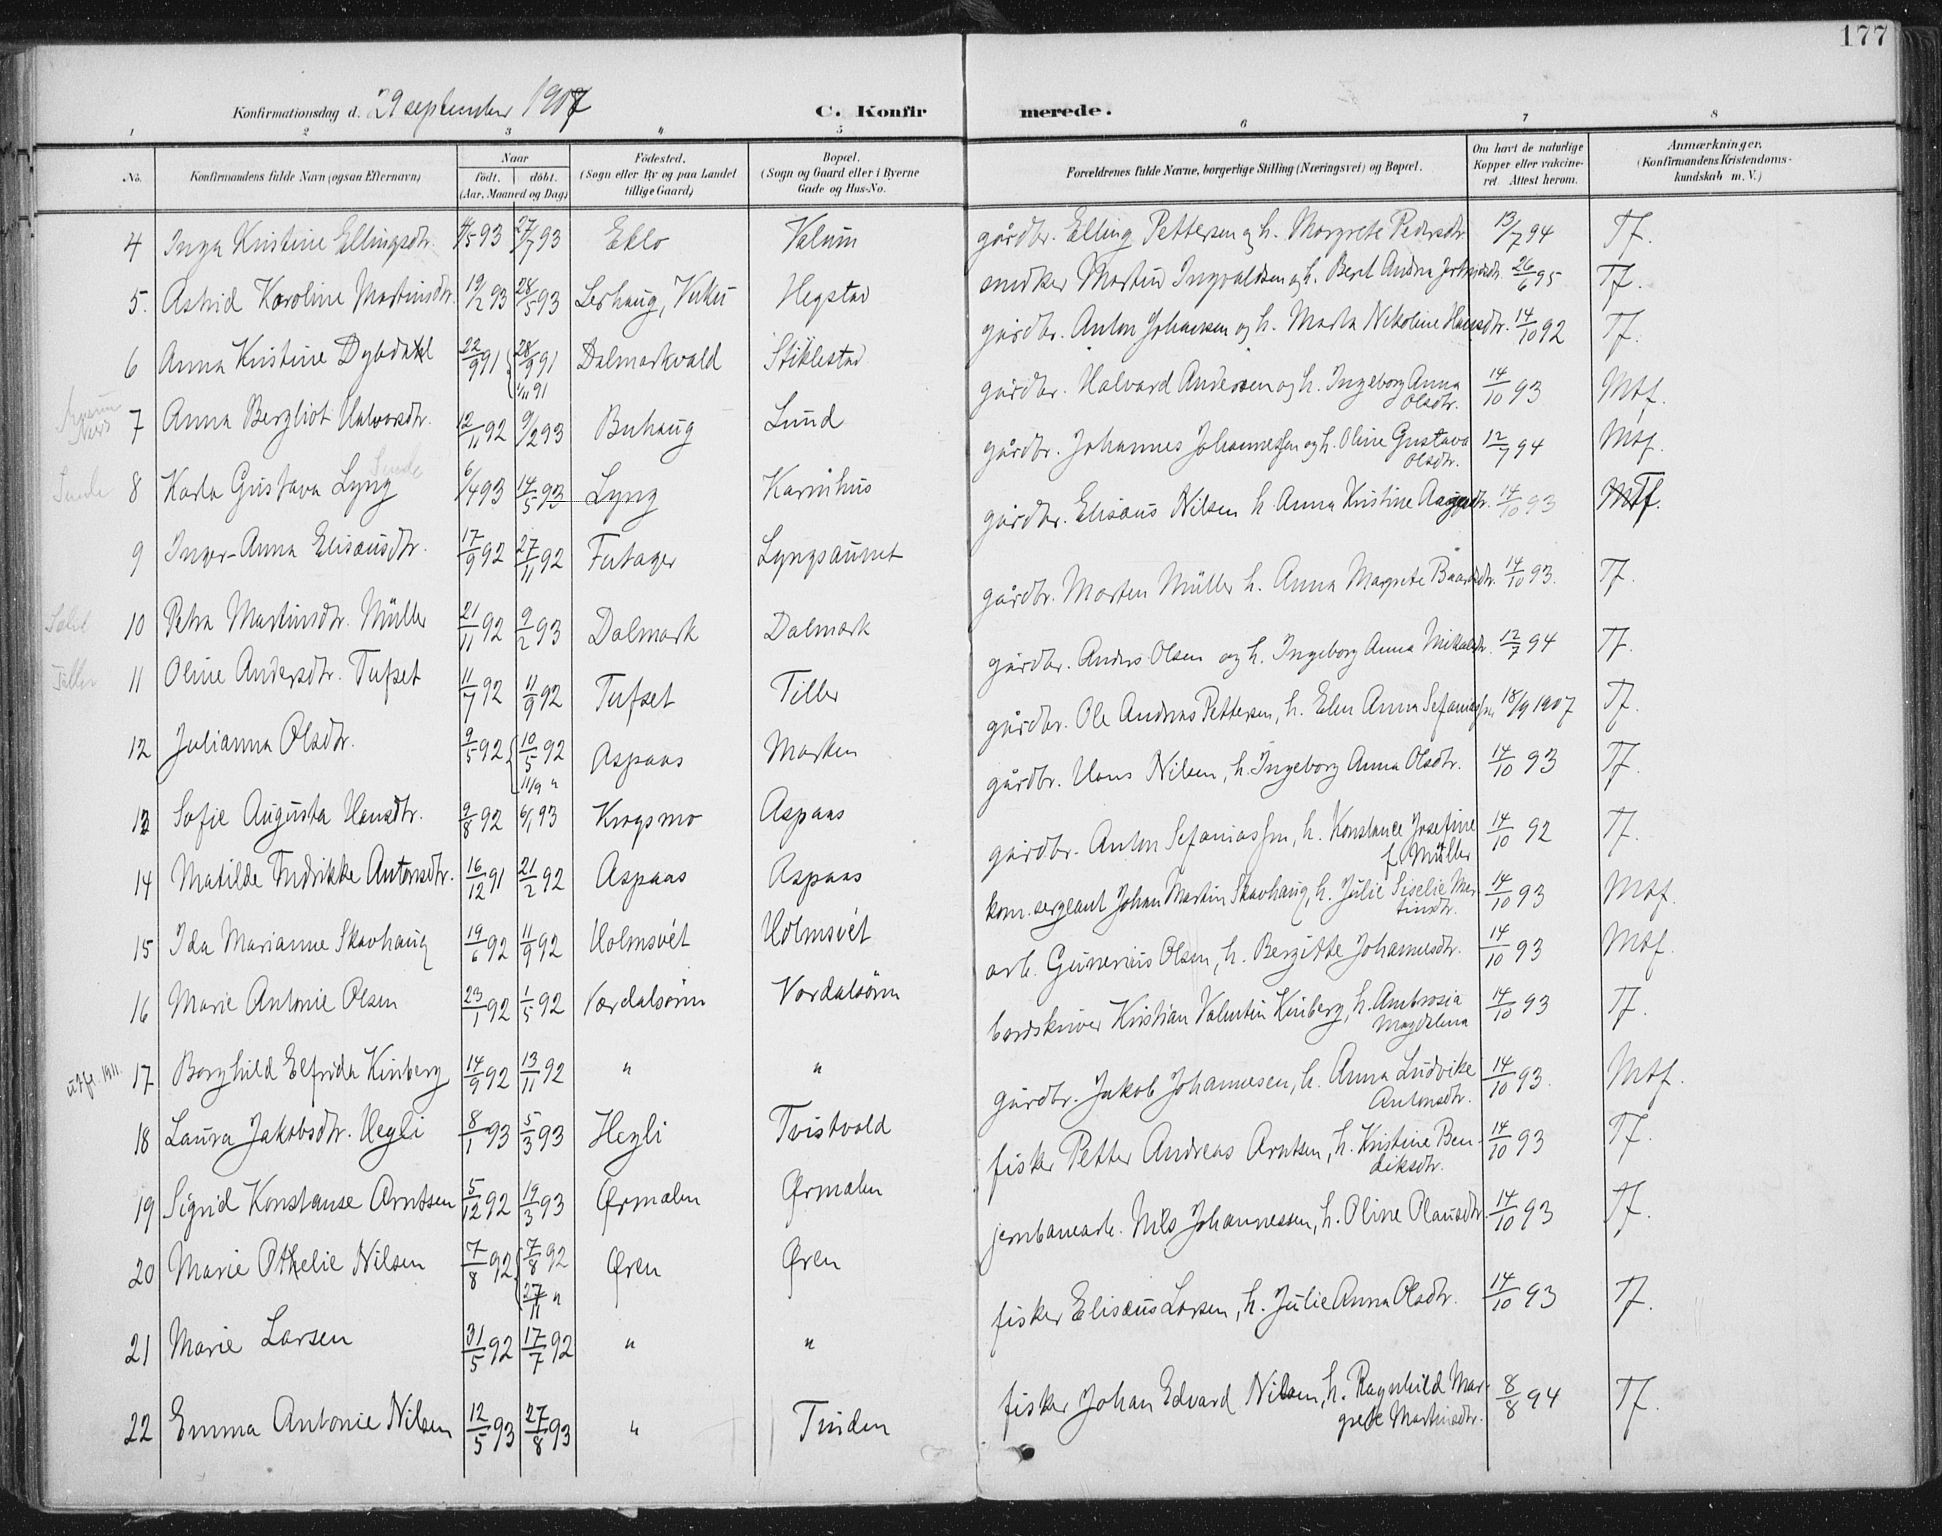 177
Konfirmationsdag d. 29 september 1907
C. Konfirmerede.
1 2 3 4 5 6 7 8
No. Konfirmandens fulde Navn (ogsaa Efternavn) Naar født. døbt. (Aar, Maaned og Dag) Fødested. (Sogn eller By og paa Landet tillige Gaard) Bopæl. (Sogn og Gaard eller i Byerne Gade og Hus-No. Forældrenes fulde Navne, borgerlige Stilling (Næringsvei) og Bopæl. Om havt de naturlige Kopper eller vakcineret. Attest herom. Anmærkninger. (Konfirmandens Kristendomskundskab m. V.)
4 Inga Kristine Ellingsdtr. 93 27/7 93 Eklo Valum gårdbr. Elling Pettersen og h. Margrete Pedersdtr 13/7 94 Tf.
5. Astrid Karoline Martinsdtr. 19/2 93 28/5 93 Lerhaug, Vuku Hegstad snedker Martin Ingvaldsen og h. Beret Andrea 26/6 95 Tf.
6 Anna Kristine Dybdahl 22/9 91 28/9 91 1/11 91 Dalmarkvald Stiklestad gårdbr. Anton Johansen og h. Marta Nikoline Hansdtr. 14/10 92 Tf.
7 Anna Bergliot Halvorsdtr. 12/11 92 9/2 93 Buhaug Lund gårdbr. Halvard Andersen og h. Ingeborg Anna Olsdtr. 14/10 93 Mtf.
Sunde 8 Karla Gustava Lyng Sunde 6/4 93 14/5 93 Lyng Karinhus gårdbr. Johannes Johannessen og h. Oline Gustava Olsdtr. 12/7 94 Mtf.
9 Inger-Anna Elisæusdtr. 17/9 92 27/11 92 Fætager Lyngsaunet gårdbr. Elisæus Nilsen h. Anna Kristine Aagesdtr. 14/10 93 Tf.
10 Petra Martinsdtr. Müller 21/11 92 9/2 93 Dalmark Dalmark gårdbr. Morten Müller h. Anna Margrete Baardsdtr. 14/10 93. Tf.
Tiller 11 Oline Andersdtr. Tufset 11/7 92 11/9 92 Tufset Tiller gårdbr. Anders Olsen og h. Ingeborg Anna Mikalsdtr. 12/7 94 Tf.
12 Julianna Olsdtr. 9/5 92 10/5 92 11/9 " Aspaas Marken gårdbr. Ole Andreas Pettersen, h. Elen Anna Sefaniasdtr. 18/9 1907 Tf.
13 Sofie Augusta Hansdtr. 9/8 92 6/1 93 Krogsmo Aspaas gårdbr. Hans Nilsen, h. Ingeborg Anna Olsdtr. 14/10 93 Tf.
14 Matilde Fredrikke Antonsdtr. 16/12 91 21/2 92 Aspaas Aspaas gårdbr. Anton Sefaniassen, h. Konstance Josefine f. Müller 14/10 92 Tf.
15 Ida Marianne Skavhaug 19/6 92 11/9 92 Holmsvét Holmsvét kom. sergeant Johan Martin Skavhaug, h. Julie Siselie Martinsdtr. 14/10 93 Mtf.
16 Marie Antonie Olsen 23/1 92 1/5 92 Værdalsøren Værdalsøren arb. Gunerius Olsen, h. Bergitte Johannesdtr. 14/10 93 Mtf.
utfl. 1911. 17 Borghild Elfrida Kinberg 14/9 92 13/11 92 " " bordskriver Kristian Valentin Kinberg, h. Ambrosia Magdalena 14/10 93 Tf.
18 Laura Jakobsdtr. Hegli 8/1 93 5/3 93 Hegli Tvistvold gårdbr. Jakob Johannesen, h. Anna Ludvike Antonsdtr. 14/10 93. Mtf.
19 Sigrid Konstanse Arntsen 5/12 92 19/3 93 Ørmælen Ørmælen fisker Petter Andreas Arntsen, h. Kristine Bendiksdtr. 14/10 93 Tf.
20 Marie Othelie Nilsen 7/8 92 7/8 92 27/11 " Øren Øren jernbanearb. Nils Johannessen, h. Oline Olausdtr. 14/10 93 Tf.
21 Marie Larsen 31/5 92 17/7 92 " " fisker Elisæus Larsen, h. Julie Anna Olsdtr. 14/10 93 Tf.
22 Emma Antonie Nilsen 12/5 93 27/8 93 " Tinden fisker Johan Edvard Nilsen, h. Ragnhild Margrete Martinsdtr. 8/8 94 Tf.